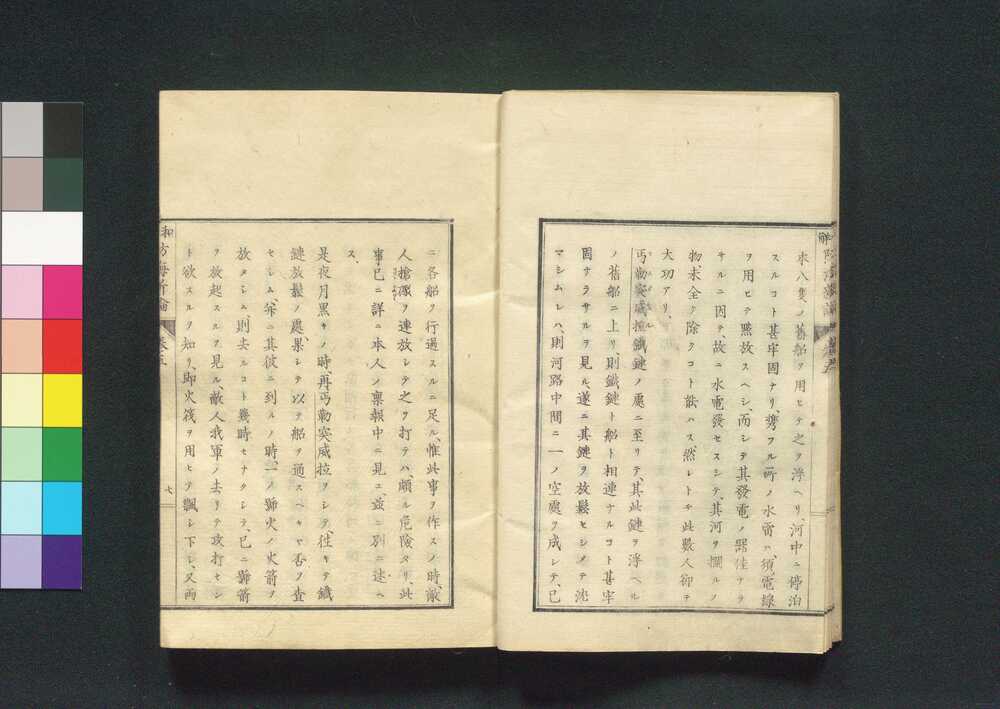 本八隻ノ舊船ヲ用ヒテ之ヲ浮ヘリ、河中ニ停泊
スルコト甚牢固ナリ、携フル所ノ水雷ハ、須電線
ヲ用ヒテ燃放スヘシ、而シテ其發電ノ器佳ナラ
サルニ因テ、故ニ水電發セスシテ、其河ヲ攔ルノ
物、未全ク除クコト能ハス、然レトモ此數人、卻テ
大功アリ、
丐勒突威拉鐵鏈ノ處ニ至リテ、其此鏈ヲ浮ヘル
ノ舊船ニ上リ、則鐵鏈ト船ト相連ナルコト甚牢
固ナラサルヲ見ル、遂ニ其鏈ヲ放鬆セシメテ沈
マシムレハ、則河路中間ニ一ノ空處ヲ成シテ、已
ニ各船ヲ行過スルニ足ル、惟此事ヲ作スノ時、敵
人槍礮ヲ連放シテ之ヲ打テハ、頗ル危險タリ、此
事已ニ詳ニ本人ノ稟報中ニ見ユ、茲ニ別ニ述ヘ
ス、
是夜月黒キノ時、再丐勒突威拉ヲシテ往キテ鐵
鏈放鬆ノ處、果シテ以テ船ヲ通スヘキヤ否ノ査
セシム、并ニ其彼ニ到ルノ時、一ノ號火ノ火箭ヲ
放タシム、則去ルコト幾時モナクシテ、已ニ號箭
ヲ放起スルヲ見ル、敵人我軍ノ去リテ攻打セン
ト欲スルヲ知リ、即火筏ヲ用ヒテ飄シ下シ、又兩
卷五
七